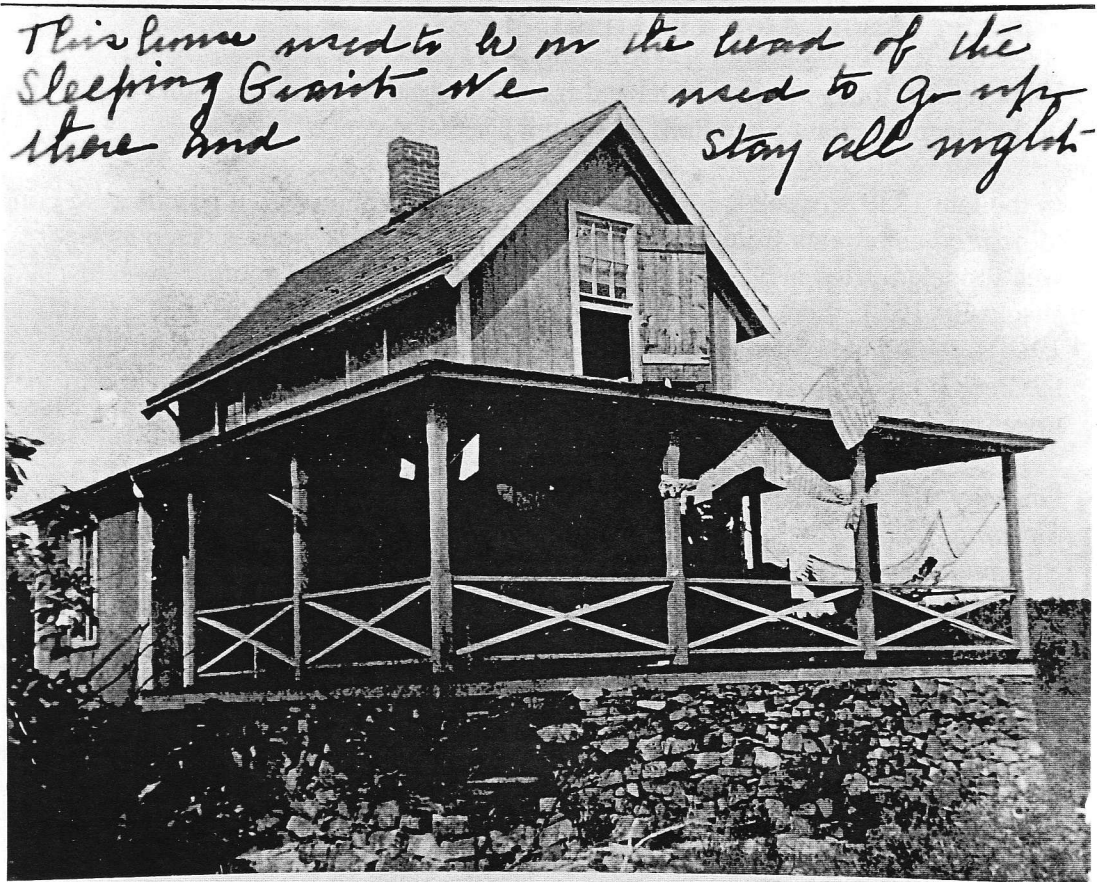 This house used to be on the head of the
Sleeping Giant We used to go up
there and stay all night